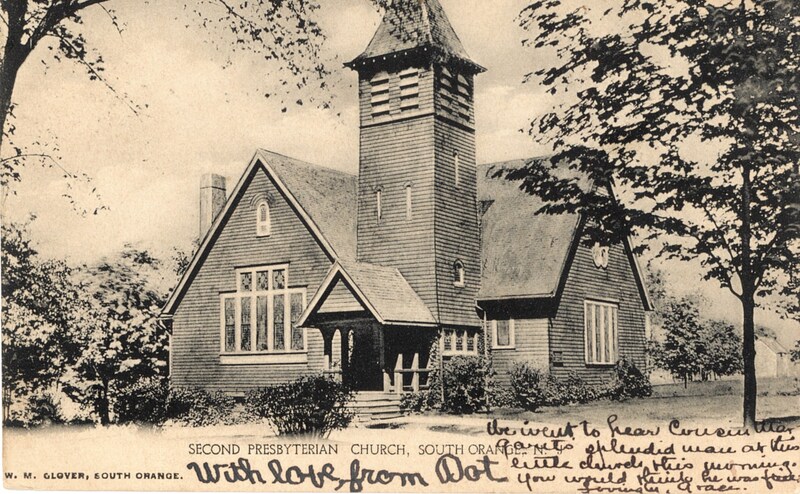 SECOND PRESBYTERIAN CHURCH, SOUTH ORANGE, N. J.
W. M. GLOVER, SOUTH ORANGE.
With love, from Dot
We went to hear Cousin
splendid man at this
little church this morning.
You would think he was
Lovingly, Grace.